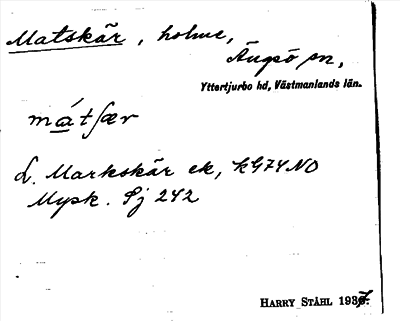 Matskär, holme,
Ängsö sn,
Yttertjurbo hd, Västmanlands län.
mátſær
L. Markskär ek, KG74NO
Mysk. Sj 242
HARRY STÅHL 1937.